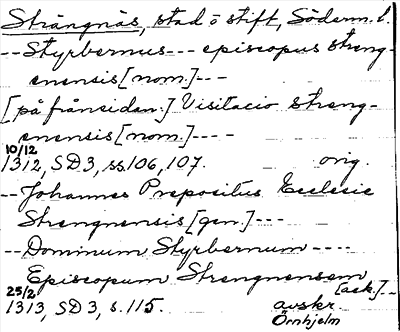 Strängnäs, stad o stift, Söderm. l.
-- Styrbernus --- episcopus streng-
enensis [nom.] ---
[på frånsidan.] Visitacio streng-
enensis [nom.] ----
10/12
1312, SD3, ss. 106, 107. orig.
-- Johannes Prepositus Ecclesie
Strengnensis [gen.] ---
-- Dominum Styrbernum ----
Episcopum Strengnensem
[ack.] --
25/2
1313, SD3, s. 115. avskr.
Örnhjelm